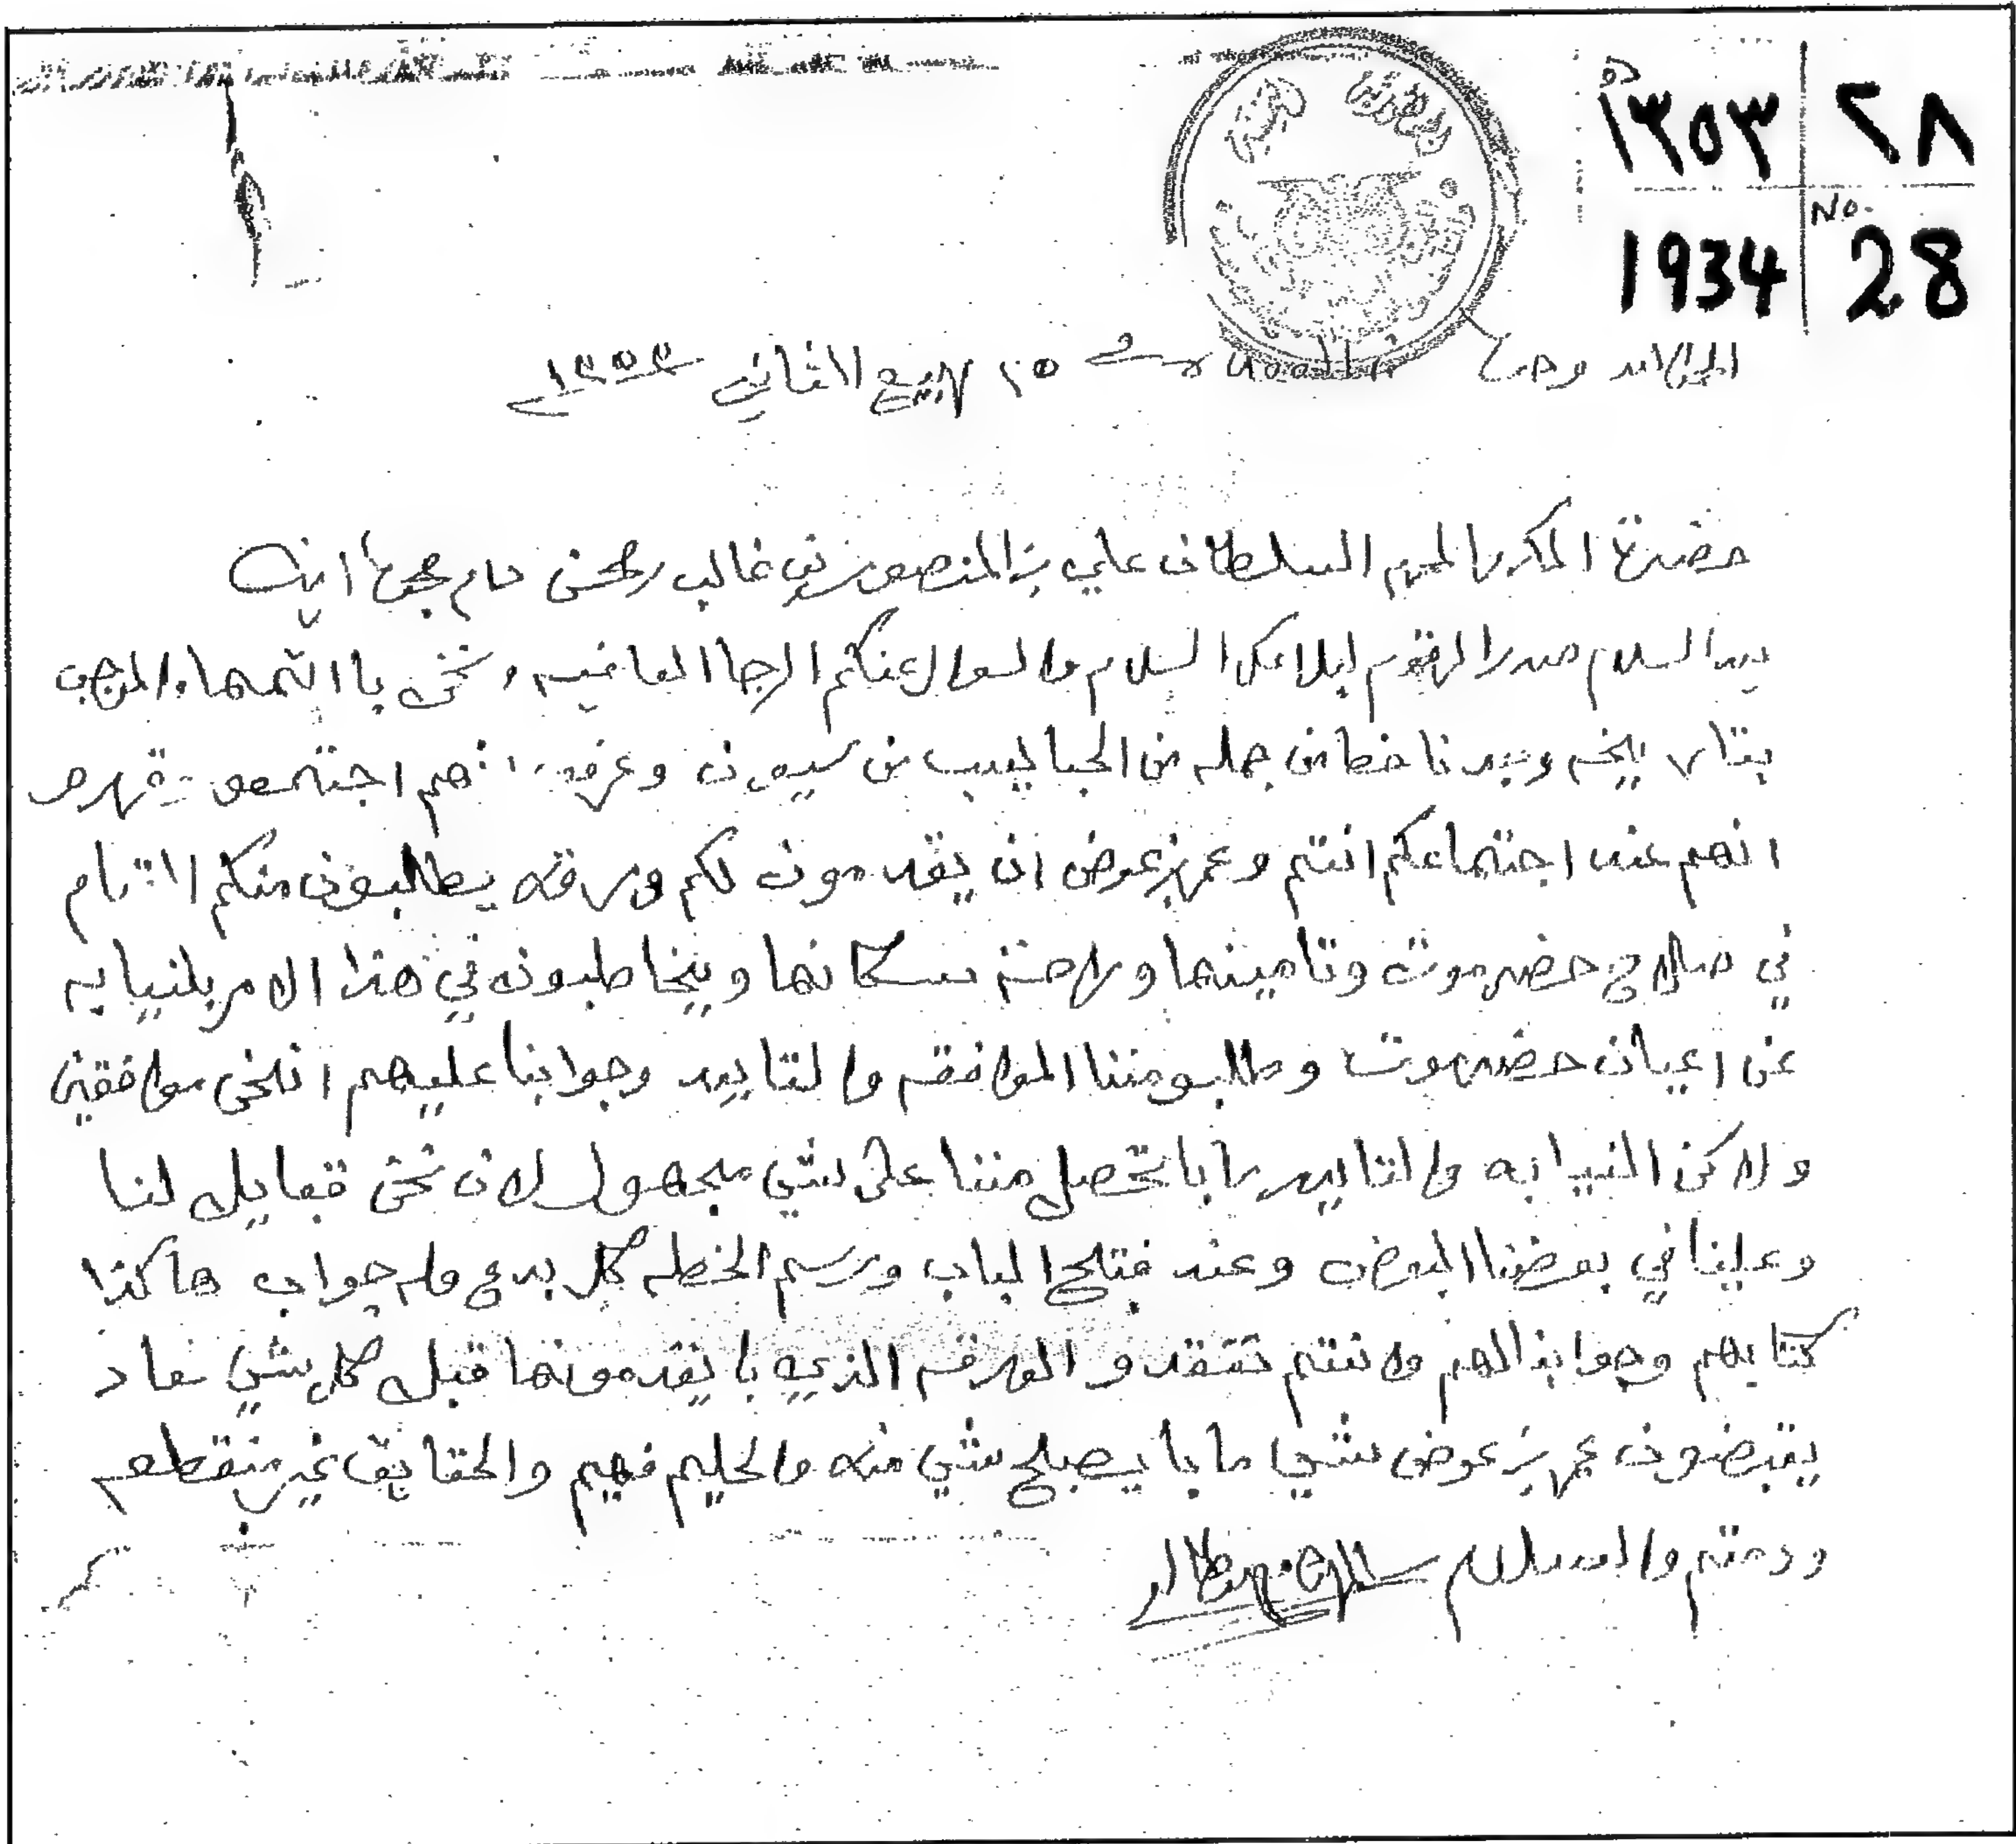 ٢٨ ١٣٥٣ھ
No. 28 1934
الحمد لله وحده ٢٥ ربيع الثاني ١٣٥٣
حضرة المكرم المحترم السلطان علي بن المنصور بن غالب بن محسن دام مجده امين
بعد السلام صدر المرقوم لبلاغكم السلام والسوال عنكم الرجا العافيه ونحن با اتمها والموجب
بتاريخه وبيدنا خط من جمله من الحبايب من سيون وعرفو انهم اجتمعو
انهم عند اجتماعكم انتم وعمر بن عوض ان يقدمون لكم ورقه يطلبون منكم التام
في صلاح حضرموت وتامينها وراحة سكانها ويخاطبون في هذا الامر بلنيابه
عن اعيان حضرموت وطلبو مننا الموافقه والتاييد وجوابنا عليهم انحن موافقين
ولاكن النيابه والتاييد ما با تحصل مننا على شي مجهول لان نحن قبايل لنا
وعلينا في بعضنا البعض وعند فتلح الباب ورسم الخطه كل بدع وله جواب هاكذا
كتابهم وجوابنا لهم وانتم تنقدو الورقه الذي با يقدمونها قبل كل شي
يقبضون عمر بن عوض شي ما با يصلح شي منه والحليم فهيم والحقايق غير منقطعه
ودمتم والسلام